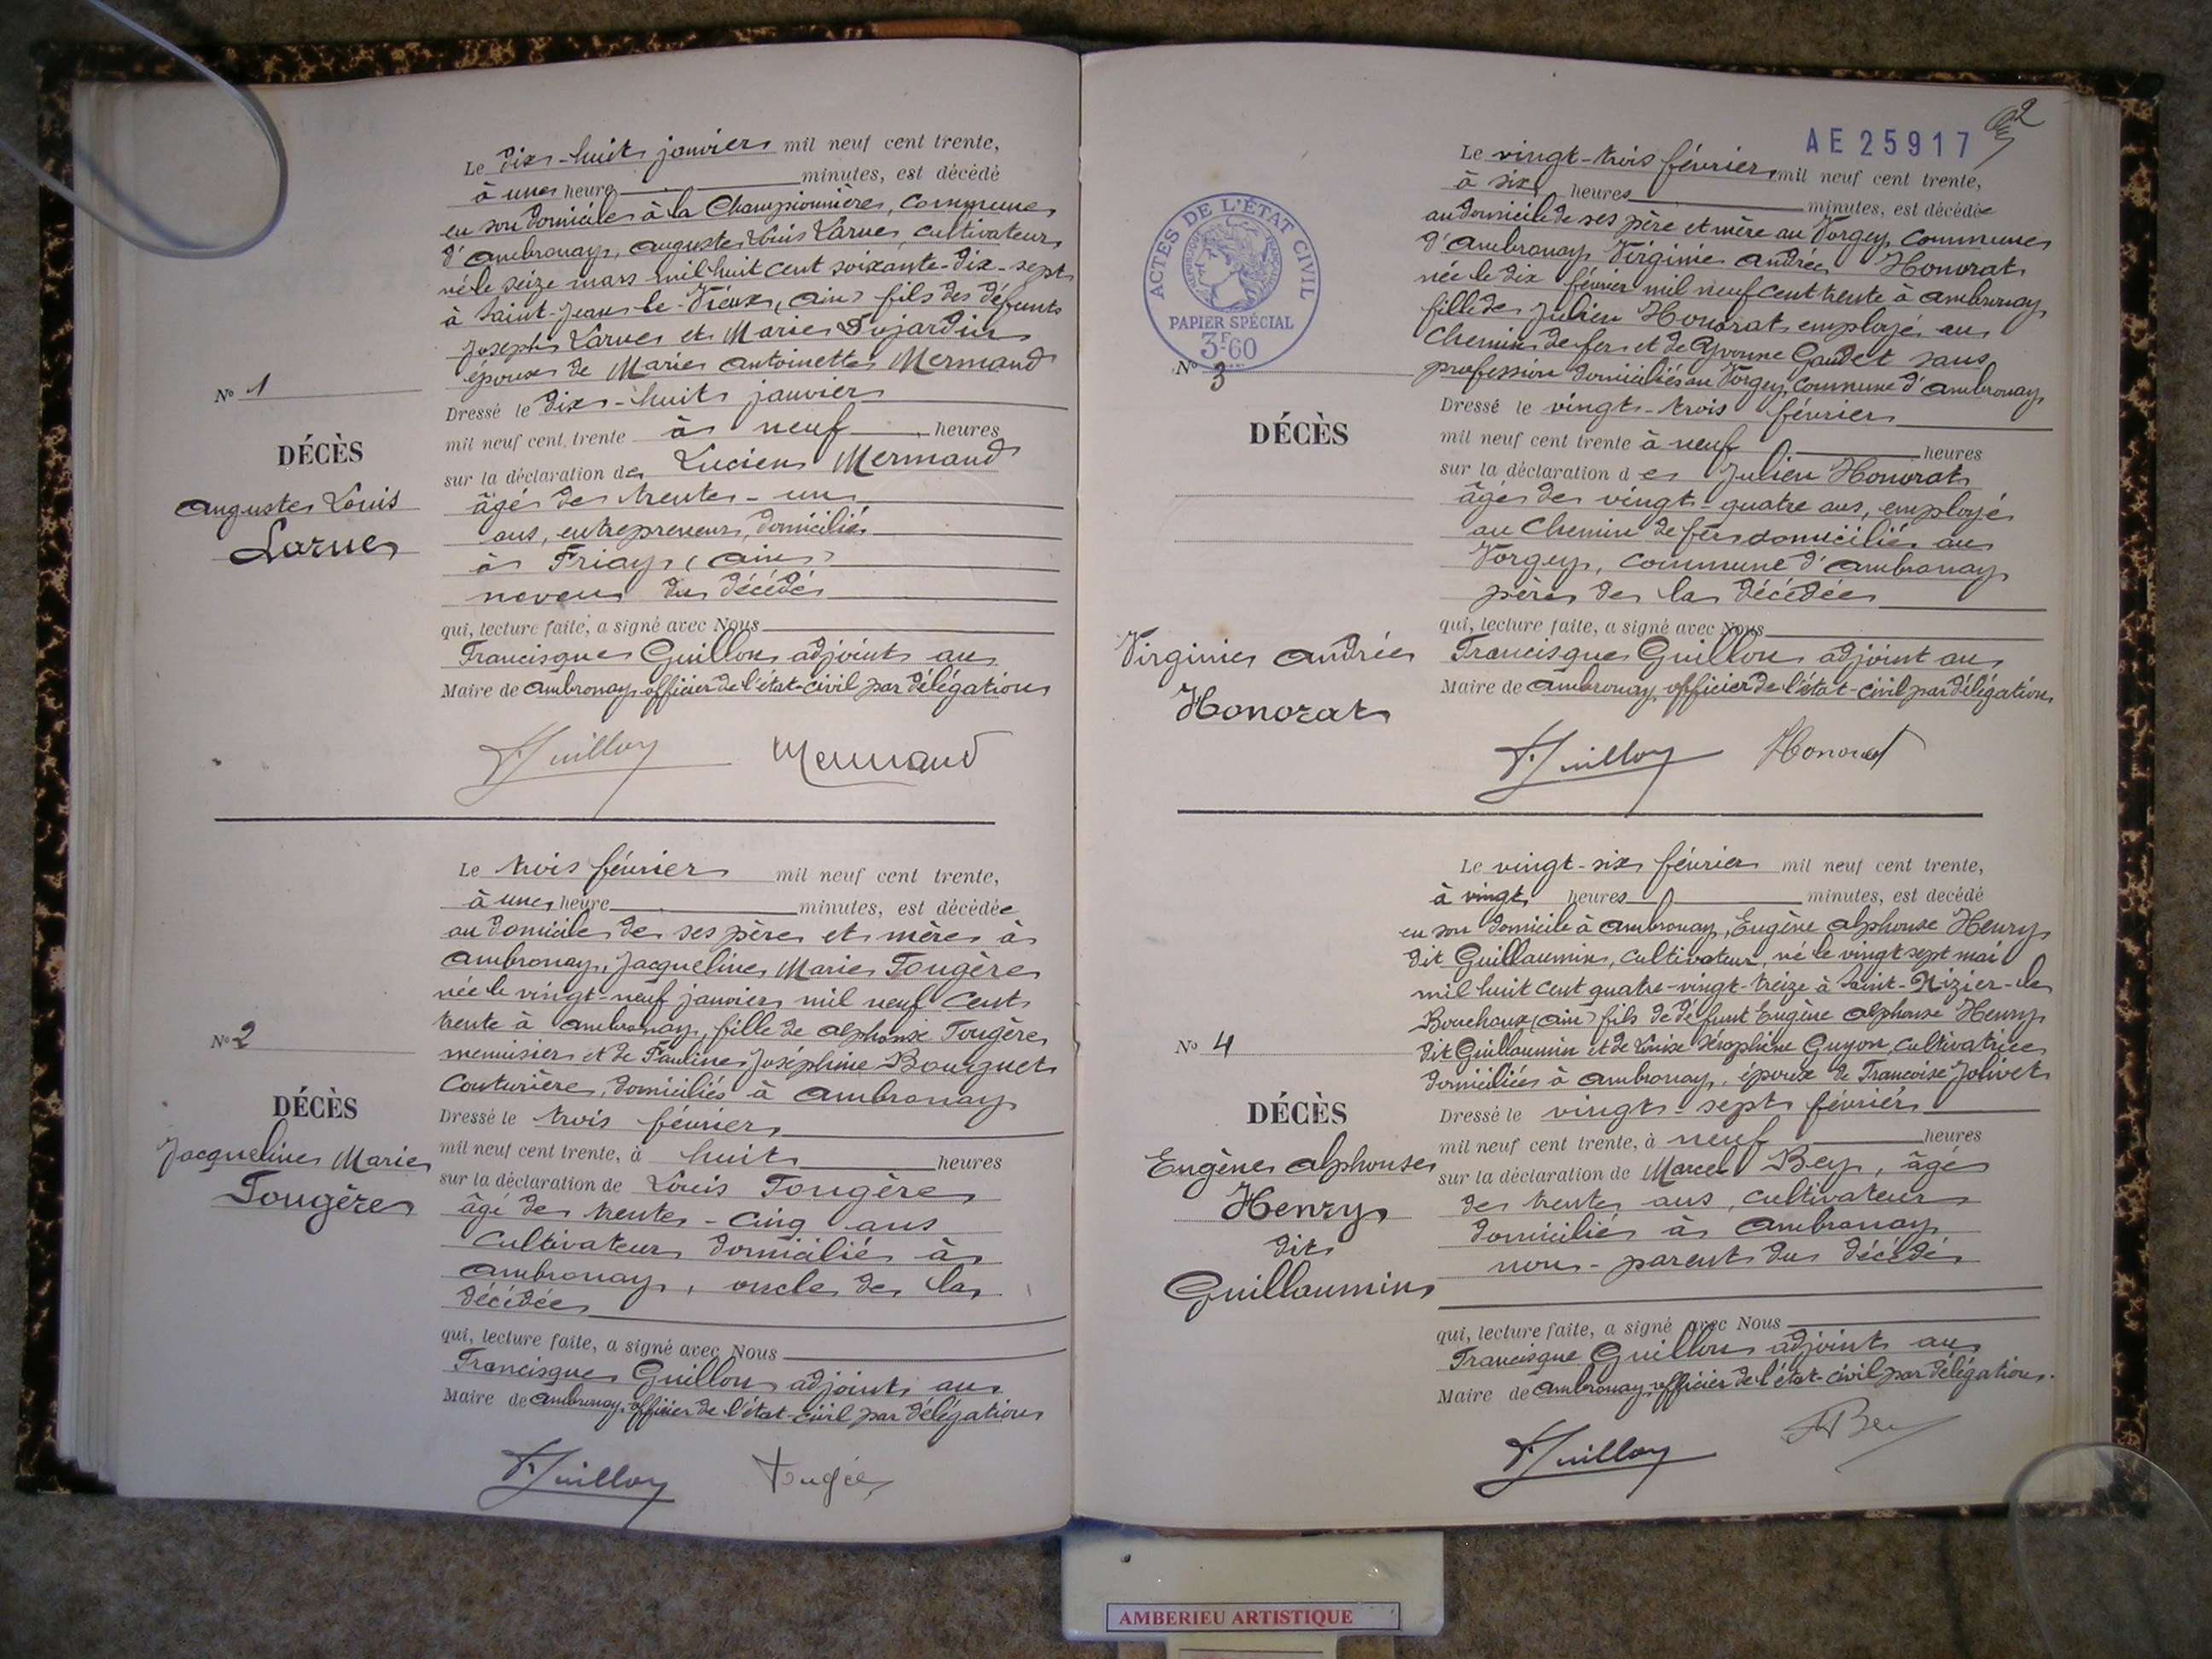 Le dix-huit janvier mil neuf cent trente,
à une heure minutes, est décédé
en son domicile à la Championnière, commune
d'Ambronay, Auguste Louis Larue, cultivateur
né le seize mars mil huit cent soixante-dix-sept
à Saint-Jean-le-Vieux, (Ain) fils des défunts
Joseph Larue et Marie Dujardin
époux de Marie Antoinette Mermand
Nº 1
Dressé le dix-huit janvier
mil neuf cent trente à neuf heures
DÉCÈS
sur la déclaration de Lucien Mermand
Auguste Louis
Larue
âgé de trente-un
ans, entrepreneur, domicilié
à Priay (Ain)
neveu du décédé
qui, lecture faite, a signé avec Nous
Francisque Guillon adjoint au
Maire de Ambronay officier de l'état-civil par délégation
F. Guillon Mermand
Le trois février mil neuf cent trente,
à une heure minutes, est décédée
au domicile de ses père et mère à
Ambronay, Jacqueline Marie Fougère
née le vingt-neuf janvier mil neuf cent
trente à Ambronay, fille de Alphonse Fougère
menuisier et de Pauline Joséphine Bourguet
couturière, domiciliés à Ambronay
Nº 2
DÉCÈS
Jacqueline Marie
Fougère
Dressé le trois février
mil neuf cent trente, à huit heures
sur la déclaration de Louis Fougère
âgé de trente-cinq ans
cultivateur domicilié à
Ambronay, oncle de la
décédée
qui, lecture faite, a signé avec Nous
Francisque Guillon adjoint au
Maire de Ambronay officier de l'état-civil par délégation
F. Guillon Fougère
2
AE 25917
ACTES DE L'ÉTAT CIVIL
RÉPUBLIQUE FRANÇAISE
PAPIER SPÉCIAL
3F60
Le vingt-trois février mil neuf cent trente,
à six heures minutes, est décédée
au domicile de ses père et mère au Vorgey, commune
d'Ambronay Virginie Andrée Honorat
née le dix février mil neuf cent trente à Ambronay
fille de Julien Honorat employé au
Chemin de fer et de Yvonne Gaudet sans
profession domiciliés au Vorgey, commune d'Ambronay
Nº 3
DÉCÈS
Virginie Andrée
Honorat
Dressé le vingt-trois février
mil neuf cent trente à neuf heures
sur la déclaration de Julien Honorat
âgé de vingt-quatre ans, employé
au Chemin de fer domicilié au
Vorgey, commune d'Ambronay
père de la décédée
qui, lecture faite, a signé avec Nous
Francisque Guillon adjoint au
Maire de Ambronay, officier de l'état-civil par délégation
F. Guillon Honorat
Le vingt-six février mil neuf cent trente,
à vingt heures minutes, est décédé
en son domicile à Ambronay, Eugène Alphonse Henry
dit Guillaumin, cultivateur, né le vingt sept mai
mil huit cent quatre-vingt-treize à Saint-Nizier-le
Bouchoux (Ain) fils de défunt Eugène Alphonse Henry
dit Guillaumin et de Louise Séraphine Guyon, cultivatrice
domiciliée à Ambronay, époux de Françoise Jolivet
Nº 4
DÉCÈS
Eugène Alphonse
Henry
dit
Guillaumin
Dressé le vingt-sept février
mil neuf cent trente, à neuf heures
sur la déclaration de Marcel Bey, âgé
de trente ans, cultivateur
domicilié à Ambronay
non-parent du décédé
qui, lecture faite, a signé avec Nous
Francisque Guillon adjoint au
Maire de Ambronay, officier de l'état-civil par délégation.
F. Guillon Bey
AMBERIEU ARTISTIQUE